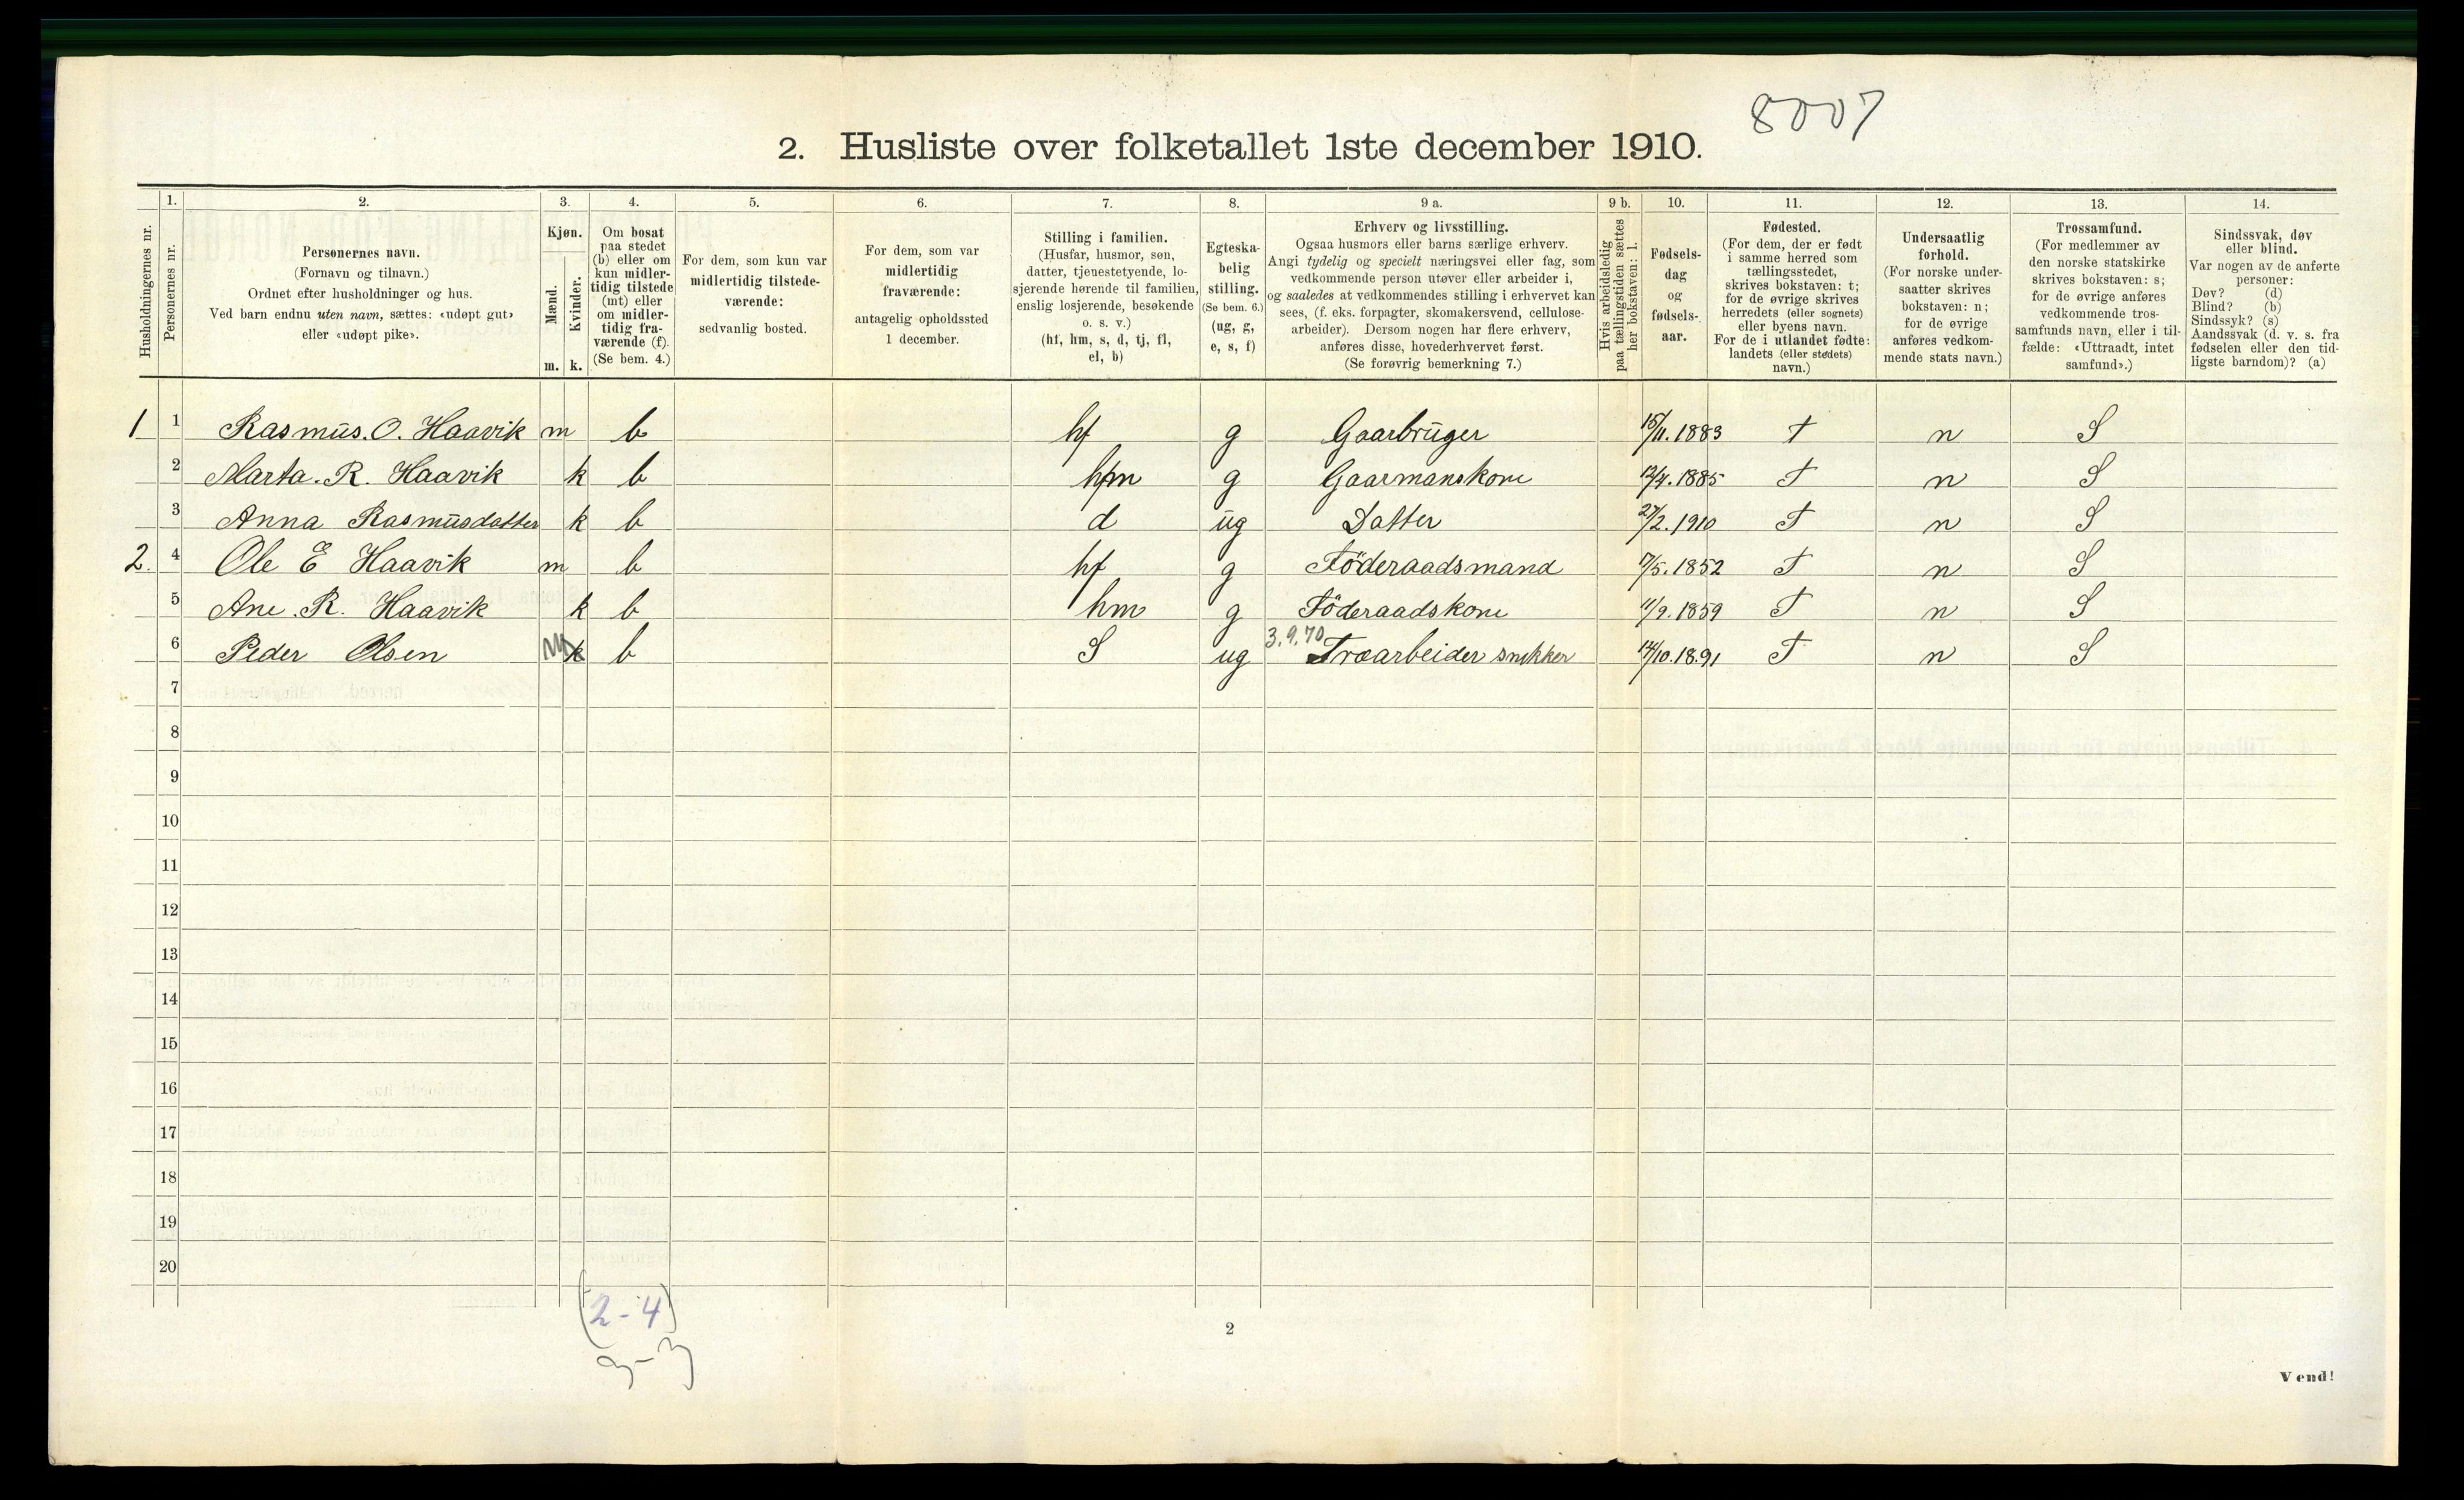 8007
2. Husliste over folketallet 1ste december 1910.
Husholdningernes nr.
1. Personernes nr.
2. Personernes navn.
(Fornavn og tilnavn.)
Ordnet efter husholdninger og hus.
Ved barn endnu uten navn, sættes: «udøpt gut»
eller «udøpt pike».
3. Kjøn.
Mænd. m.
Kvinder. k.
4. Om bosat
paa stedet
(b) eller om
kun midler-
tidig tilstede
(mt) eller
om midler-
tidig fra-
værende (f).
(Se bem. 4.)
5. For dem, som kun var
midlertidig tilstede-
værende:
sedvanlig bosted.
6. For dem, som var
midlertidig
fraværende:
antagelig opholdssted
1 december.
7. Stilling i familien.
(Husfar, husmor, søn,
datter, tjenestetyende, lo-
sjerende hørende til familien,
enslig losjerende, besøkende
o. s. v.)
(hf, hm, s, d, tj, fl,
el, b)
8. Egteska-
belig
stilling.
(Se bem. 6.)
(ug, g,
e, s, f)
9 a. Erhverv og livsstilling.
Ogsaa husmors eller barns særlige erhverv.
Angi tydelig og specielt næringsvei eller fag, som
vedkommende person utøver eller arbeider i,
og saaledes at vedkommendes stilling i erhvervet kan
sees, (f. eks. forpagter, skomakersvend, cellulose-
arbeider). Dersom nogen har flere erhverv,
anføres disse, hovederhvervet først.
(Se forøvrig bemerkning 7.)
9 b. Hvis arbeidsledig
paa tællingstiden sættes
her bokstaven: l.
10. Fødsels-
dag
og
fødsels-
aar.
11. Fødested.
(For dem, der er født
i samme herred som
tællingsstedet,
skrives bokstaven: t;
for de øvrige skrives
herredets (eller sognets)
eller byens navn.
For de i utlandet fødte:
landets (eller stedets)
navn.)
12. Undersaatlig
forhold.
(For norske under-
saatter skrives
bokstaven: n;
for de øvrige
anføres vedkom-
mende stats navn.)
13. Trossamfund.
(For medlemmer av
den norske statskirke
skrives bokstaven: s;
for de øvrige anføres
vedkommende tros-
samfunds navn, eller i til-
fælde: «Uttraadt, intet
samfund».)
14. Sindssvak, døv
eller blind.
Var nogen av de anførte
personer:
Døv? (d)
Blind? (b)
Sindssyk? (s)
Aandssvak (d. v. s. fra
fødselen eller den tid-
ligste barndom)? (a)
1 1 Rasmus. O. Haavik m b hf g Gaarbruger 15/11. 1883 t n S
2 Marta. R. Haavik k b hm g Gaarmanskone 12/4. 1885 T n S
3 Anna Rasmusdatter k b d ug Datter 27/2. 1910 T n S
2. 4 Ole E Haavik m b hf g Föderaadsmand /5. 1852 T n S
5 Ane. R. Haavik k b hm g Föderaadskone 11/9. 1859 T n S
6 Peder Olsen m k b S ug 3.9.70 Træarbeider snekker 14/10. 1891 T n S
7
8
9
10
11
12
13
14
15
16
17
18
19
20
(2-4)
2
Vend!